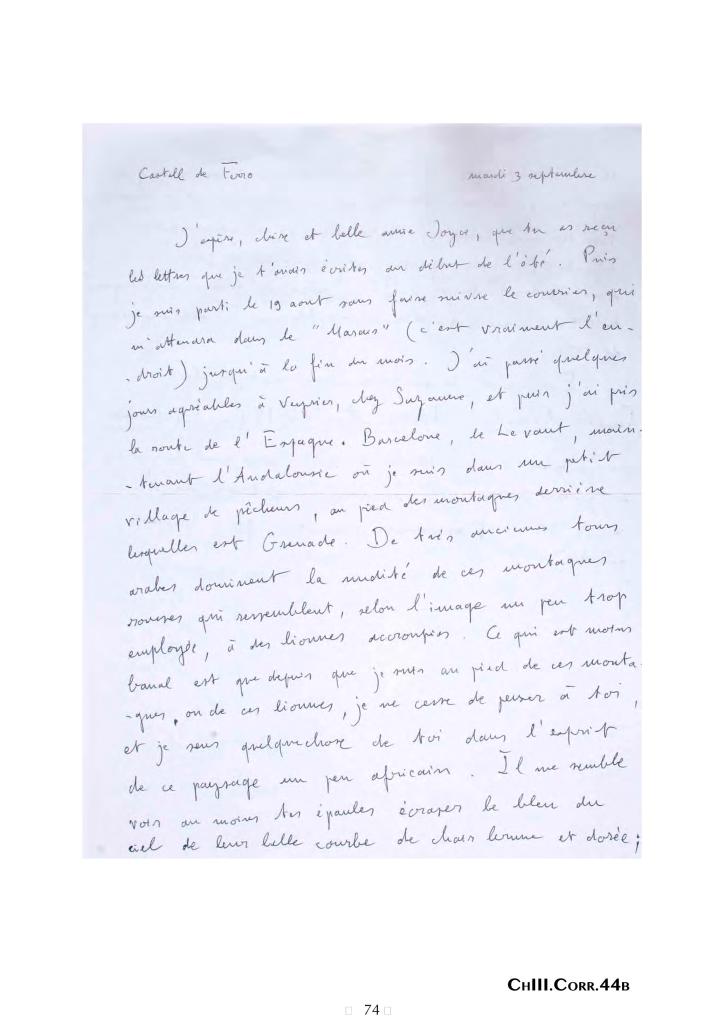 Castell de Ferro
mardi 3 septembre
J'espère, chère et belle amie Joyce, que tu as reçu
les lettres que je t'avais écrites au début de l'été. Puis
je suis parti le 19 aout sans faire suivre le courrier, qui
m'attendra dans le "Marais" (c'est vraiment l'en-
-droit) jusqu'à la fin du mois. J'ai passé quelques
jours agréables à Veyrier, chez Suzanne, et puis j'ai pris
la route de l'Espagne. Barcelone, le Levant, main-
-tenant l'Andalousie où je suis dans un petit
village de pêcheurs, au pied des montagnes derrière
lesquelles est Grenade. De très anciennes tours
arabes dominent la nudité de ces montagnes
rousses qui ressemblent, selon l'image un peu trop
employée, à des lionnes accroupies. Ce qui est moins
banal est que depuis que je suis au pied de ces monta-
-gnes, ou de ces lionnes, je ne cesse de penser à toi,
et je sens quelquechose de toi dans l'esprit
de ce paysage un peu africain. Il me semble
voir au moins tes épaules écraser le bleu du
ciel de leur belle courbe de chair brune et dorée;
CHIII.CORR.44B
74